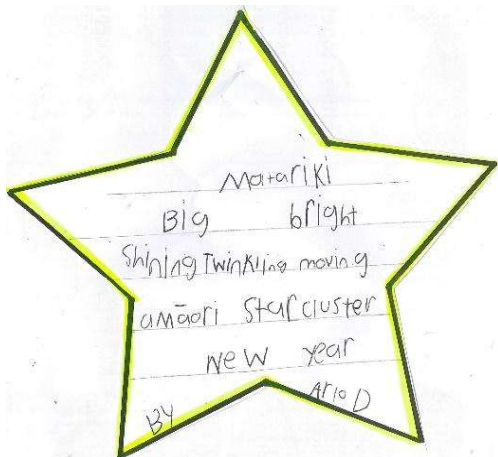 Matariki
Big bright
Shining Twinkling moving
a māori star cluster
New year
BY Ario D